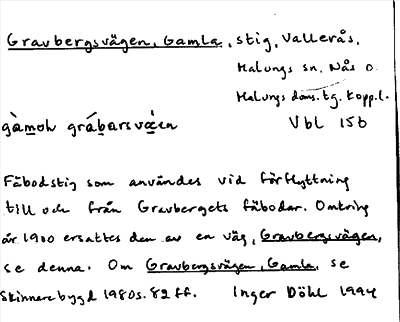 Gravbergsvägen, Gamla, stig, Vallerås,
Malungs sn. Nås o.
Malungs doms.tg. Kopp.l.
Vbl 15b
Fäbodstig som användes vid förflyttning
till och från Gravbergets fäbodar. Omkring
år 1900 ersattes den av en väg, Gravbergsvägen,
se denna. Om Gravbergsvägen, Gamla, se
Skinnarebygd 1980 s. 82 ff. Inger Döhl 1994